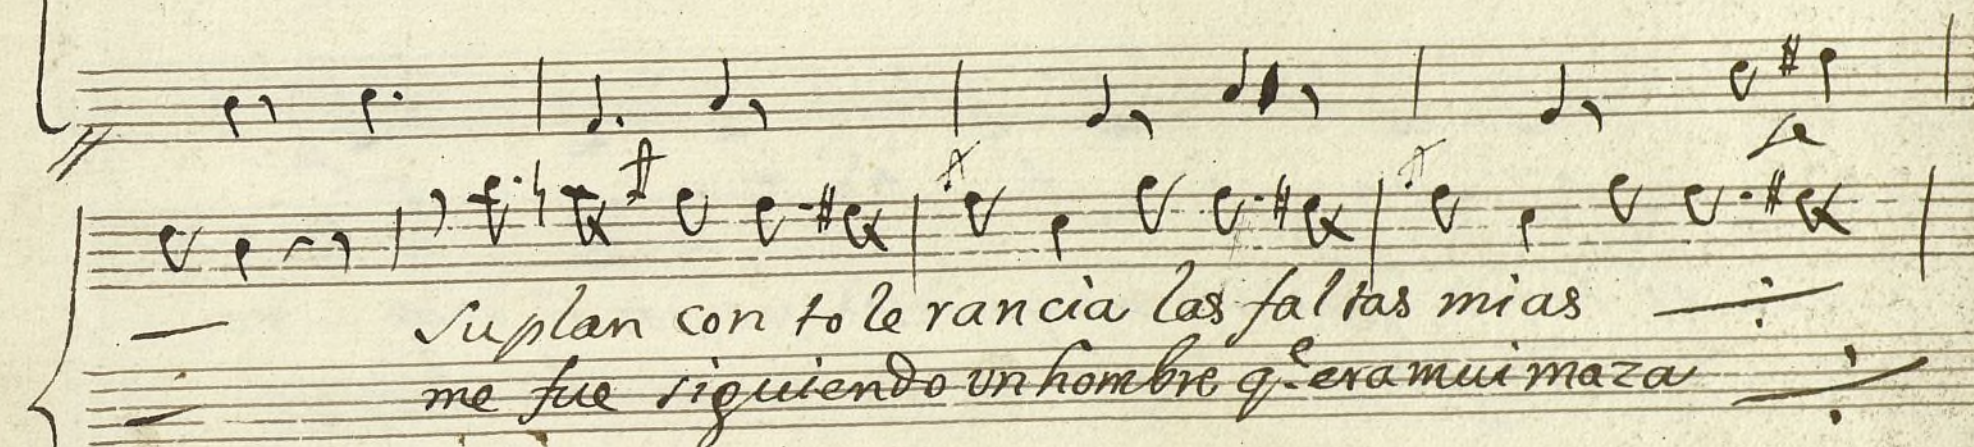 suplan con tolerancia las faltas mias
me fue siguiendo un hombre q.e era mui maza